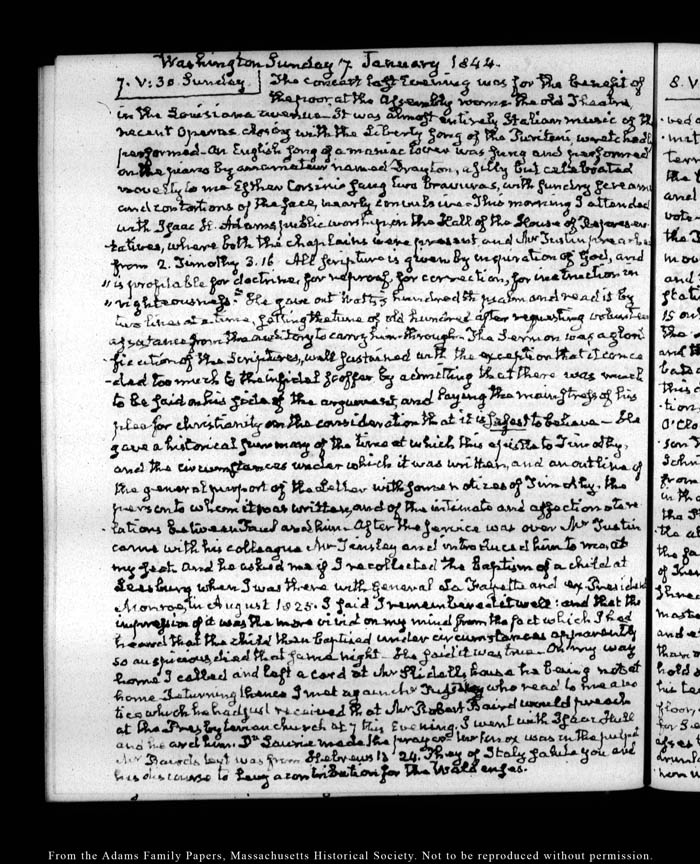 Washington Sunday 7 January 1844.
7. V:30 Sunday. The concert last Evening was for the benefit of
the poor, at the Assembly rooms the old Theatre,
in the Louisiana avenue. It was almost entirely Italian music of the
recent Operas closing with the Liberty song of the Puritani, wretchedly
performed. An English song of a maniac lover was sung and performed
on the piano by an amateur named Drayton, a silly but celebrated
novelty to me Esther Corsini sang two bravuras, with sundry screams
and contortions of the face, nearly convulsive. This morning I attended
with Isaac H. Adams public worship in the Hall of the House of Represen-
tatives, where both the chaplains were present and Mr Tustin preached
from 2. Timothy 3.16. All scripture is given by inspiration of God, and
" is profitable for doctrine, for reproof, for correction, for instruction in
" righteousness." He gave out Watts's hundredth psalm and read it by
two lines at a time, setting the tune of old hundred after requesting
assistance from the auditory to carry him through. The Sermon was a glori-
fication of the Scriptures, well sustained with the exception that it conce
-ded too much to the infidel scoffer by admitting that there was much
to be said on his side of the argument, and laying the main stress of his
plea for christianity on the consideration that it is safest to believe. He
gave a historical summary of the time at which this epistle to Timothy,
and the circumstances under which it was written, and an outline of
the general purport of the Letter with some notices of Timothy, the
person to whom it was written, and of the intimate and affectionate re-
lations between Paul and him. After the service was over Mr Tustin
came with his colleague Mr Tinsley and introduced him to me, at
my seat and he asked me if I recollected the Baptism of a child at
Leesburg when I was there with General La Fayette and ex President
Monroe, in August 1825. I said I remembered it well: and that the
impression of it was the more vivid on my mind from the fact which I had
heard that the child then baptised under circumstances apparently
so auspicious died that same night. He said it was true. On my way
home I called and left a card at Mr Slidell's house he being not at
home. Returning thence I met again Mr who read to me a no
tice which he had just received that Mr Robert Baird would preach
at the Presbyterian church at 7 this Evening. I went with Isaac Hull
and heard him. Dr Laurie made the prayer Mr Knox was in the pulpit
Mr Baird's text was from Hebrews 13. 24. They of Italy salute you and
his discourse to levy a contribution for the Waldenses.
8. V
From the Adams Family Papers, Massachusetts Historical Society. Not to be reproduced without permission.